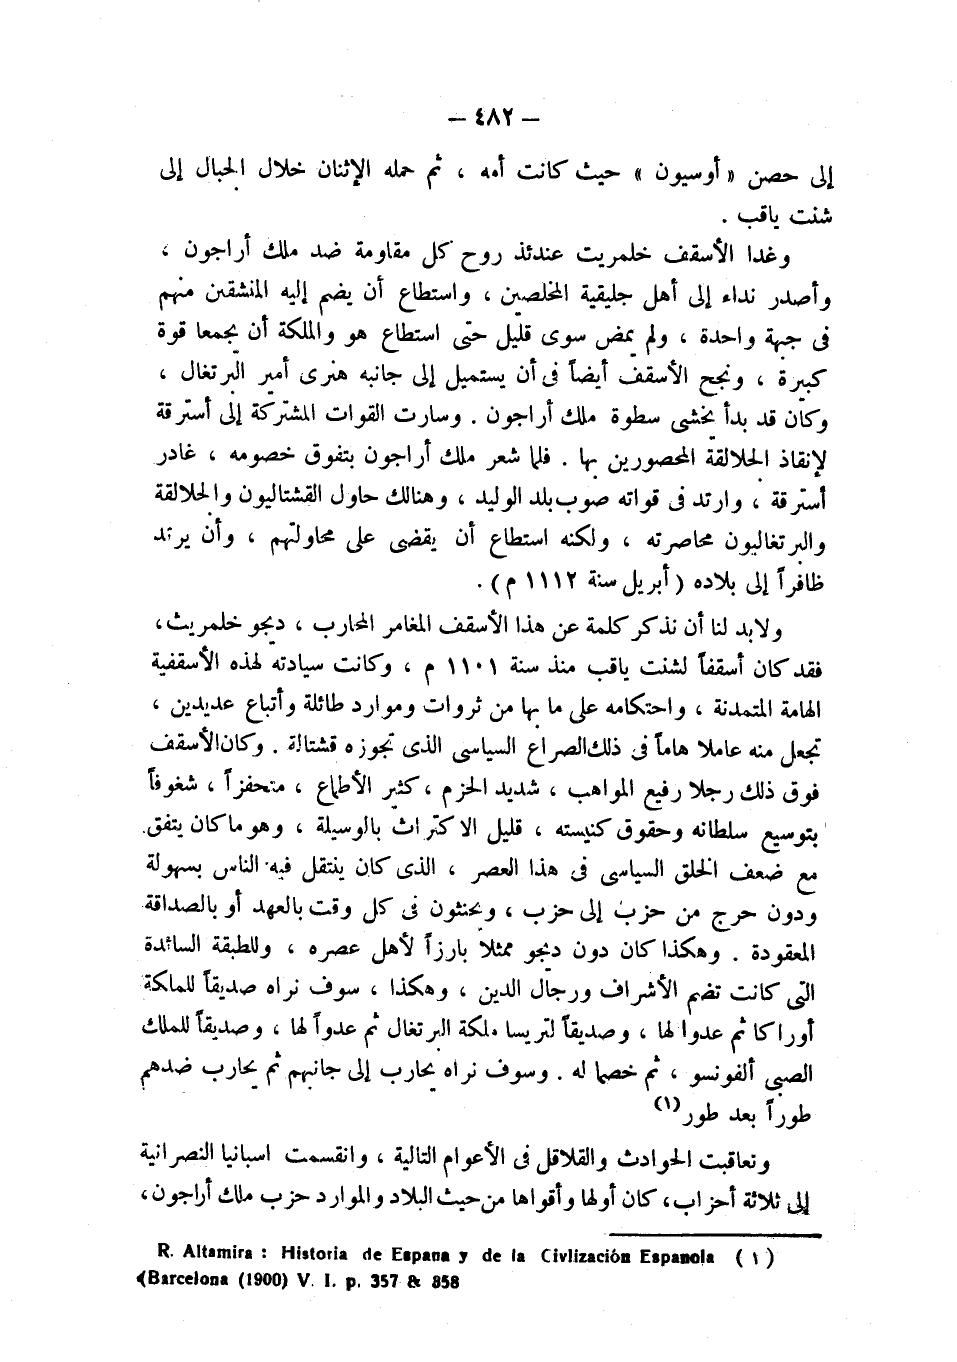 — ٤٨٢ —
إلى حصن « أوسيون » حيث كانت أمه ، ثم حمله الإثنان خلال الجبال إلى
شنت ياقب .
وغدا الأسقف خلمريت عندئذ روح كل مقاومة ضد ملك أراجون ،
وأصدر نداء إلى أهل جليقية المخلصين ، واستطاع أن يضم إليه المنشقين منهم
فى جبهة واحدة ، ولم يمض سوى قليل حتى استطاع هو والملكة أن يجمعا قوة
كبيرة ، ونجح الأسقف أيضاً فى أن يستميل إلى جانبه هنرى أمير البرتغال ،
وكان قد بدأ يخشى سطوة ملك أراجون . وسارت القوات المشتركة إلى أسترقة
لإنقاذ الجلالقة المحصورين بها . فلما شعر ملك أراجون بتفوق خصومه ، غادر
أسترقة ، وارتد فى قواته صوب بلد الوليد ، وهنالك حاول القشتاليون والجلالقة
والبرتغاليون محاصرته ، ولكنه استطاع أن يقضى على محاولتهم ، وأن يرتد
ظافراً إلى بلاده ( أبريل سنة ١١١٢ م ) .
ولابد لنا أن نذكر كلمة عن هذا الأسقف المغامر المحارب ، ديجو خلمريث ،
فقد كان أسقفاً لشنت ياقب منذ سنة ١١٠١ م ، وكانت سيادته لهذه الأسقفية
الهامة المتمدنة ، واحتكامه على ما بها من ثروات وموارد طائلة وأتباع عديدين ،
تجعل منه عاملا هاماً فى ذلك الصراع السياسى الذى تجوزه قشتالة . وكان الأسقف
فوق ذلك رجلا رفيع المواهب ، شديد الحزم ، كثير الأطماع ، متحفزاً ، شغوفاً
بتوسيع سلطانه وحقوق كنيسته ، قليل الاكتراث بالوسيلة ، وهو ما كان يتفق
مع ضعف الخلق السياسى فى هذا العصر ، الذى كان ينتقل فيه الناس بسهولة
ودون حرج من حزب إلى حزب ، ويحنثون فى كل وقت بالعهد أو بالصداقة
المعقودة . وهكذا كان دون ديجو ممثلا بارزاً لأهل عصره ، وللطبقة السائدة
التى كانت تضم الأشراف ورجال الدين ، وهكذا ، سوف نراه صديقاً للملكة
أوراكا ثم عدوا لها ، وصديقاً لتريسا ملكة البرتغال ثم عدواً لها ، وصديقاً للملك
الصبى ألفونسو ، ثم خصما له . وسوف نراه يحارب إلى جانبهم ثم يحارب ضدهم
طوراً بعد طور (١)
وتعاقبت الحوادث والقلاقل فى الأعوام التالية ، وانقسمت اسبانيا النصرانية
إلى ثلاثة أحزاب ، كان أولها وأقواها من حيث البلاد والموارد حزب ملك أراجون ،
R. Altamira : Historia de Espana y de la Civlización Espanola ( ١ )
(Barcelona (1900) V. I. p. 357 & 858